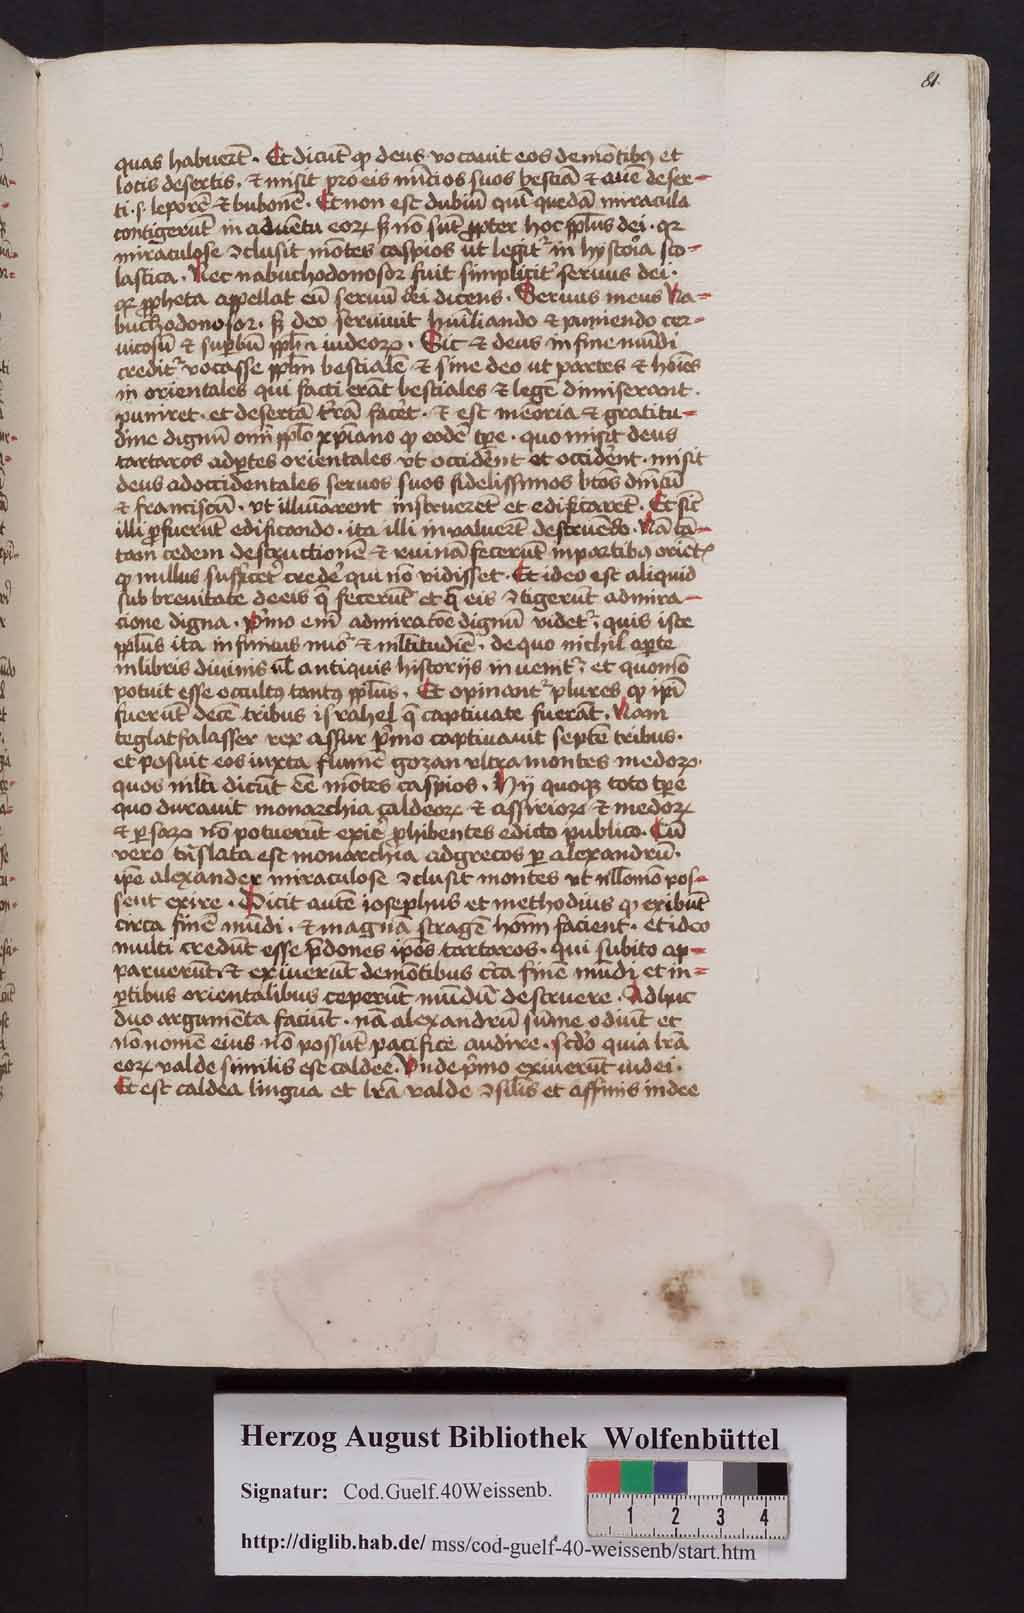 81.
quas habuert̄ . Et dicūt qꝫ deus vocauit eos de mōtibꝫ et
locis desertis . & misit pro eis nūcios suos bestiā & aue deser-
ti .s. leporē & bubonē . Et non est dubiū quī quedā miracula
contigerūt in aduētu eoꝝ sꝫ nō sūt ꝓpter hoc ppl̄us dei . qꝛ
miraculose ꝯclusit mōtes caspios ut legitᷣ in hystoria sco-
lastica . Nec nabuchodonosor fuit simpliciťˀ seruus dei .
qꝛ ꝓpheta appellat eū seruū dei dicens . Seruus meus Na-
buchodonosor . sꝫ deo seruiuit hūiliando & puniendo cer-
uicosū & suꝑbū ppl̄m iudeoꝝ . Sic & deus in fine mūdi
creditᷣ vocasse ppl̄m bestialē & sine deo ut partes & hoīes
in orientales qui facti erāt bestiales & legē dimiserant .
puniret . et desertā tr̄rā facēt . & est meoria & gratitu-
dine dignū om̄i ppl̄o xp̄iano qꝫ eodē tp̄e . quo misit deus
tartaros ad ꝑtes orientales vt occidēnt et occidēnt . misit
deus ad occidentales seruos suos fidelissimos btōs dn̄icū
& franciscū . vt illuīarent instruerēt et edificarēt . Et sic̄
illi ꝓfuerūt edificando . ita illi inualuert̄ destruēdo . Nā tā-
tam cedem destructionē & ruinā fecerūt in partibꝫ oriēt
qꝫ nullus sufficetᷣ crede᷑ qui nō vidisset . Et ideo est aliquid
sub breuitate de eis q̄ fecerūt et q̄ eis ꝯtigerūt admira-
cione digna . Pͥmo em̄ admiratōe dignū videtᷣ ; quis iste
ppl̄us ita infinitus nūo & ml̄titudiē . de quo nichil aꝑte
in libris diuinis vl̄ antiquis historijs inuenitᷣ ; et quomō
potuit esse occultꝫ tantꝫ ppl̄us . Et opinantᷣ plures qꝫ ip̄i
fuerūt decē tribus israhel q̄ captiuate fuerāt . Nam
teglatfalasser rex assur pͥmo captiuauit septē tribus .
et posuit eos iuxta flumē gozan vltra montes medoꝝ .
quos ml̄ti dicūt eē mōtes caspios . Hij quoqꝫ toto tp̄e
quo durauit monarchia caldeoꝝ & assirioꝝ & medoꝝ
& ꝑsaꝝ nō potuerūt exiē ꝓhibentes edicto publico . Cū
vero trāslata est monarchia ad grecos ꝑ alexandrū .
ip̄e alexander miraculose ꝯclusit montes vt nll̄omō pos-
sent exire . Dicit autē iosephus et methodius qꝫ exibūt
circa finē mūdi . & magna stragē hoīm facient . et ideo
multi credūt esse p̄dones ip̄os tartaros . qui subito ap-
paruerūt & exiuerūt de mōtibus cīta finē mūdi et in-
ꝑtibus orientalibus ceperūt mūdū destruere . Adhuc
duo argumēta faciūt . nā alexandrū sūme odiūt et
nō nomē eius nō possūt pacifice audire . sc̄do quia lrā
eoꝝ valde similis est caldee . Vnde pͥmo exiuerūt iudei .
Et est caldea lingua et lrā valde ꝯsil̄is et affinis iudee
Herzog August Bibliothek Wolfenbüttel
Signatur: Cod.Guelf.40Weissenb.
1 2 3 4
http://diglib.hab.de/ mss/cod-guelf-40-weissenb/start.htm